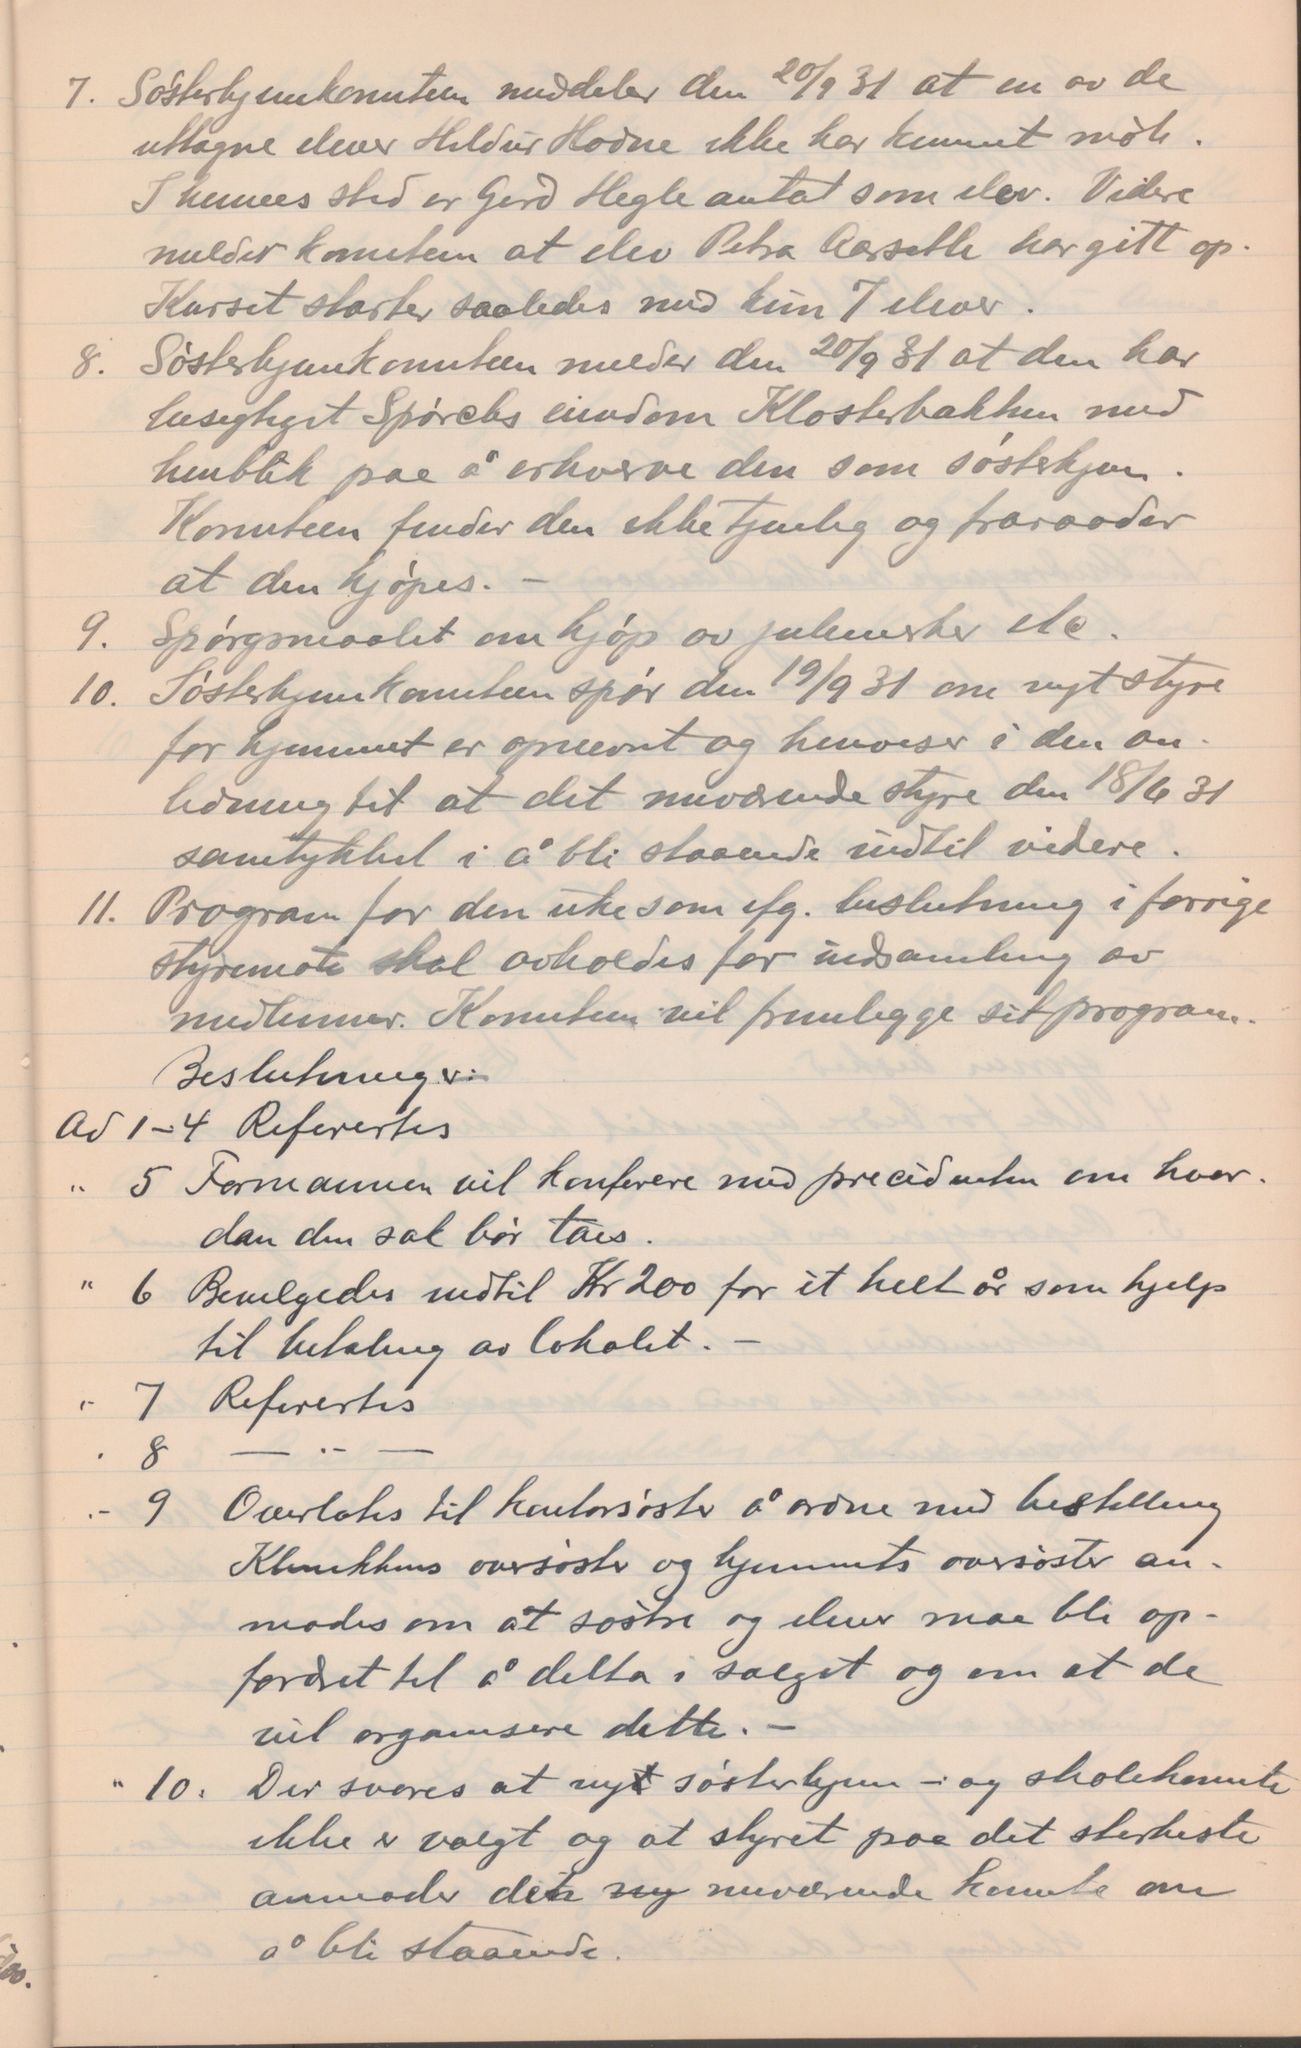 7. Søsterhjemkomiteen meddeler den 20/9 31 at en av de
uttagne elever Hildur Hodne ikke har kunnet møte.
I hennes sted er Gerd Hegle antat som elev. Videre
melder komiteen at elev Petra Aarseth har gitt op.
Kurset starter saaledes med kun 7 elever.
8. Søsterhjemkomiteen melder den 20/9 31 at den har
besigtiget Spørcks eiendom Klosterbakken med
henblik paa å erhverve den som søsterhjem.
Komiteen finder den ikke tjenlig og fraraader
at den kjøpes. —
9. Spørgsmaalet om kjøp av julemerker etc.
10. Søsterhjemkomiteen spør den 19/9 31 om nyt styre
for hjemmet er opnevnt og henviser i den an-
ledning til at det nuværende styre den 18/6 31
samtykket i å bli staaende indtil videre.
11. Program for den uke som efg. beslutning i forrige
styremøte skal avholdes for indsamling av
medlemmer. Komiteen vil fremlegge sit program.
Beslutninger:
Ad 1–4 Refertes
" 5 Formannen vil konferere med precidenten om hvor-
dan den sak bør taes.
" 6 Bevilgedes indtil Kr 200 for et helt år som hjelp
til betaling av lokalet. —
" 7 Refertes
" 8 — " —
" 9 Overlates til kontorsøster å ordne med bestilling
Klinikkens oversøster og hjemmets oversøster an-
modes om at søstre og elever maa bli op-
fordret til å delta i salget og om at de
vil organisere dette. —
" 10. Der svares at nyt søsterhjem – og skolekomite
ikke er valgt og at styret paa det sterkeste
anmoder den ny nuværende komite om
å bli staaende.